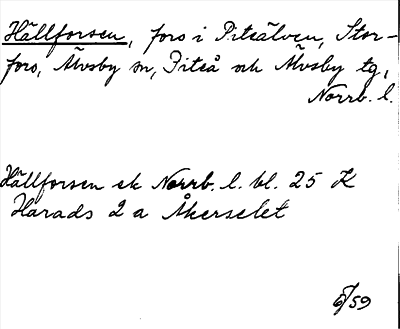 Hällforsen, fors i Piteälven, Stor-
fors, Älvsby sn, Piteå och Älvsby tg,
Norrb. l.
Hällforsen ek Norrb. l. bl. 25 K
Harads 2 a Åkerselet
6/59